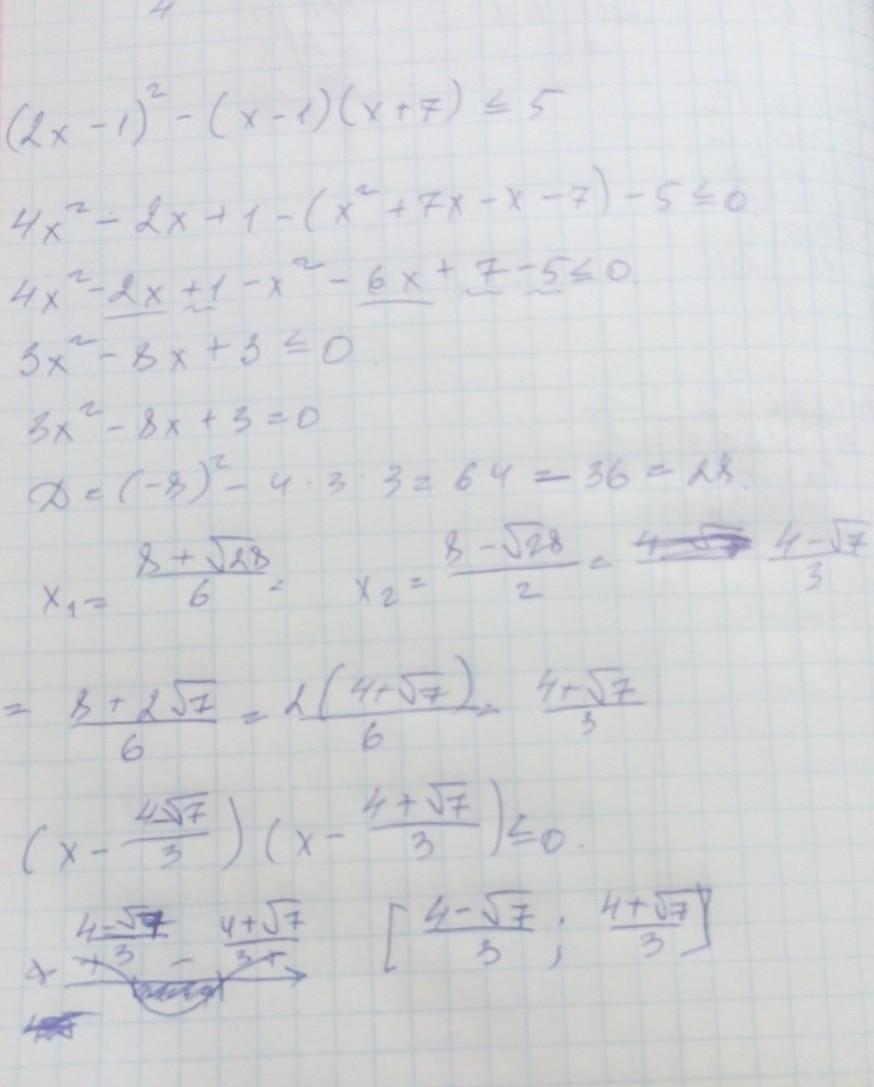 4
(2x - 1)² - (x - 1)(x + 7) ≤ 5
4x² - 2x + 1 - (x² + 7x - x - 7) - 5 ≤ 0
4x² - 2x + 1 - x² - 6x + 7 - 5 ≤ 0
3x² - 8x + 3 ≤ 0
3x² - 8x + 3 = 0
D = (-8)² - 4 · 3 · 3 = 64 - 36 = 28.
x₁ = (8 + √28)/6 = x₂ = (8 - √28)/2 = (4 - √7)/3
= (8 + 2√7)/6 = 2(4 + √7)/6 = (4 + √7)/3
(x - 4√7/3)(x - (4 + √7)/3) ≤ 0.
(4 - √7)/3 (4 + √7)/3 [(4 - √7)/3 ; (4 + √7)/3]
+ - +